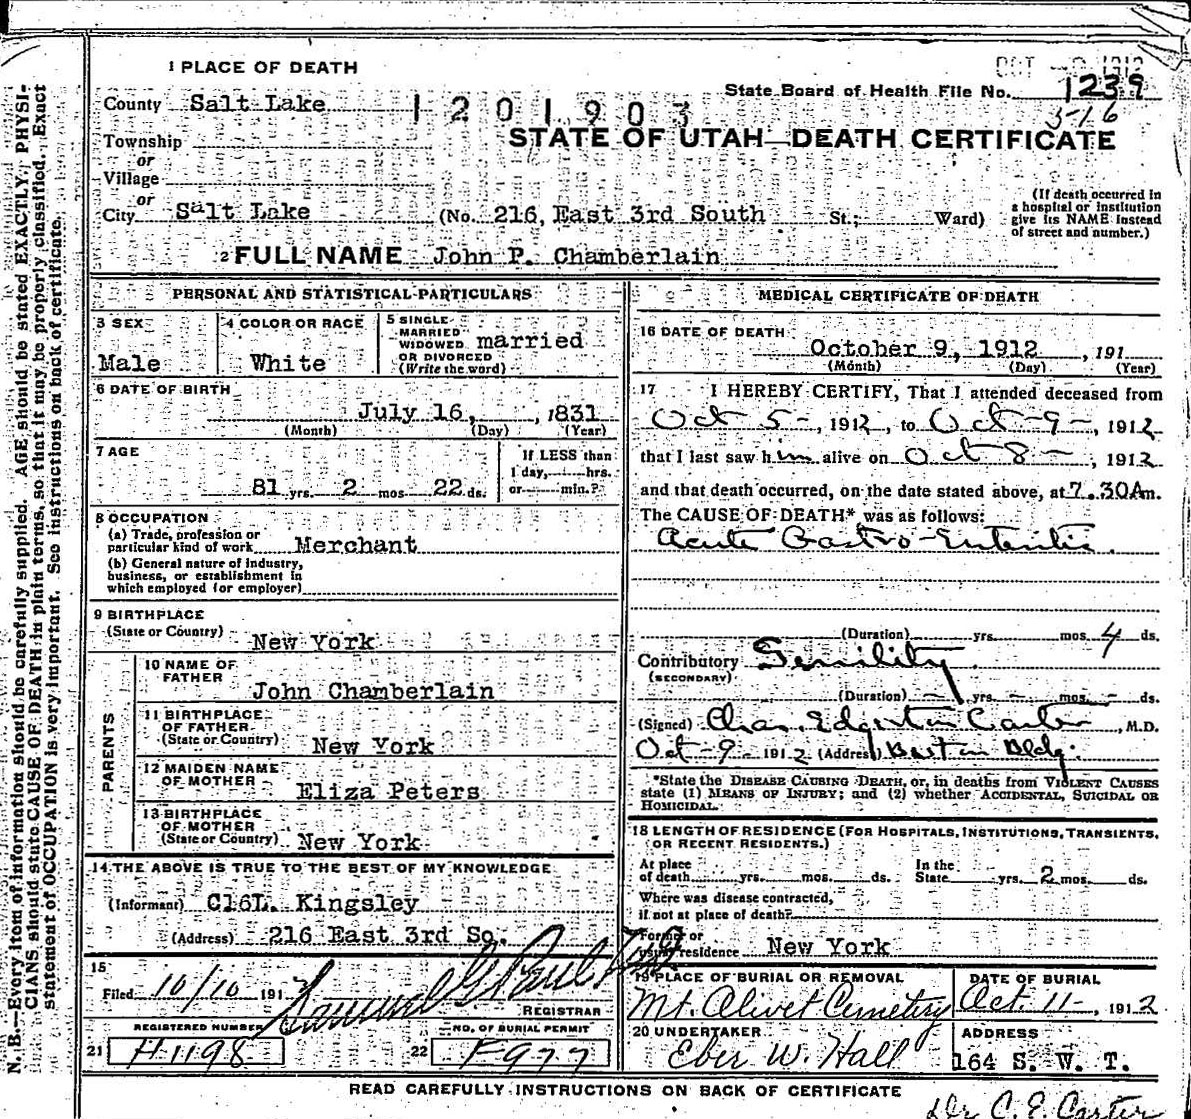 1 PLACE OF DEATH
County Salt Lake
1201903
State Board of Health File No. 1239
516
STATE OF UTAH—DEATH CERTIFICATE
Township
or
Village
or
City Salt Lake (No. 216, East 3rd South St.; Ward)
(If death occurred in
a hospital or institution
give its NAME instead
of street and number.)
2 FULL NAME John P. Chamberlain
PERSONAL AND STATISTICAL PARTICULARS
3 SEX
Male
4 COLOR OR RACE
White
5 SINGLE
MARRIED
WIDOWED
OR DIVORCED
(Write the word)
married
6 DATE OF BIRTH
July 16, , 1831
(Month) (Day) (Year)
7 AGE
81 yrs. 2 mos 22 ds.
If LESS than
1 day, hrs.
or min.?
8 OCCUPATION
(a) Trade, profession or
particular kind of work Merchant
(b) General nature of industry,
business, or establishment in
which employed (or employer)
9 BIRTHPLACE
(State or Country)
New York
PARENTS
10 NAME OF
FATHER
John Chamberlain
11 BIRTHPLACE
OF FATHER
(State or Country) New York
12 MAIDEN NAME
OF MOTHER Eliza Peters
13 BIRTHPLACE
OF MOTHER
(State or Country) New York
14 THE ABOVE IS TRUE TO THE BEST OF MY KNOWLEDGE
(Informant) C16L. Kingsley
(Address) 216 East 3rd So.
15
Filed 10/10 1912
Samuel G Paul
REGISTRAR
REGISTERED NUMBER
21 H1198
NO. OF BURIAL PERMIT
22 F977
MEDICAL CERTIFICATE OF DEATH
16 DATE OF DEATH
October 9, 1912 , 191
(Month) (Day) (Year)
17 I HEREBY CERTIFY, That I attended deceased from
Oct 5-, 1912, to Oct-9-, 1912
that I last saw him alive on Oct 8-, 1912
and that death occurred, on the date stated above, at 7.30Am.
The CAUSE OF DEATH* was as follows:
Acute Gastro-Enteritis.
(Duration) yrs. mos. 4 ds.
Contributory Senility.
(SECONDARY)
(Duration) - yrs. - mos. - ds.
(Signed) Chas. Edgerton Carter, M.D.
Oct-9- 1912 (Address) Boston Bldg.
*State the DISEASE CAUSING DEATH, or, in deaths from VIOLENT CAUSES
state (1) MEANS OF INJURY; and (2) whether ACCIDENTAL, SUICIDAL OR
HOMICIDAL.
18 LENGTH OF RESIDENCE (FOR HOSPITALS, INSTITUTIONS, TRANSIENTS,
OR RECENT RESIDENTS.)
At place
of death yrs. mos. ds.
In the
State yrs. 2 mos. ds.
Where was disease contracted,
if not at place of death?
Former or
usual residence New York
19 PLACE OF BURIAL OR REMOVAL
Mt. Olivet Cemetery
DATE OF BURIAL
Oct. 11-, 1912
20 UNDERTAKER
Eber W. Hall
ADDRESS
164 S. W. T.
READ CAREFULLY INSTRUCTIONS ON BACK OF CERTIFICATE
Dr C. E. Carter
N. B.—Every item of information should be carefully supplied. AGE should be stated EXACTLY. PHYSI-
CIANS should state CAUSE OF DEATH in plain terms, so that it may be properly classified. Exact
statement of OCCUPATION is very important. See instructions on back of certificate.